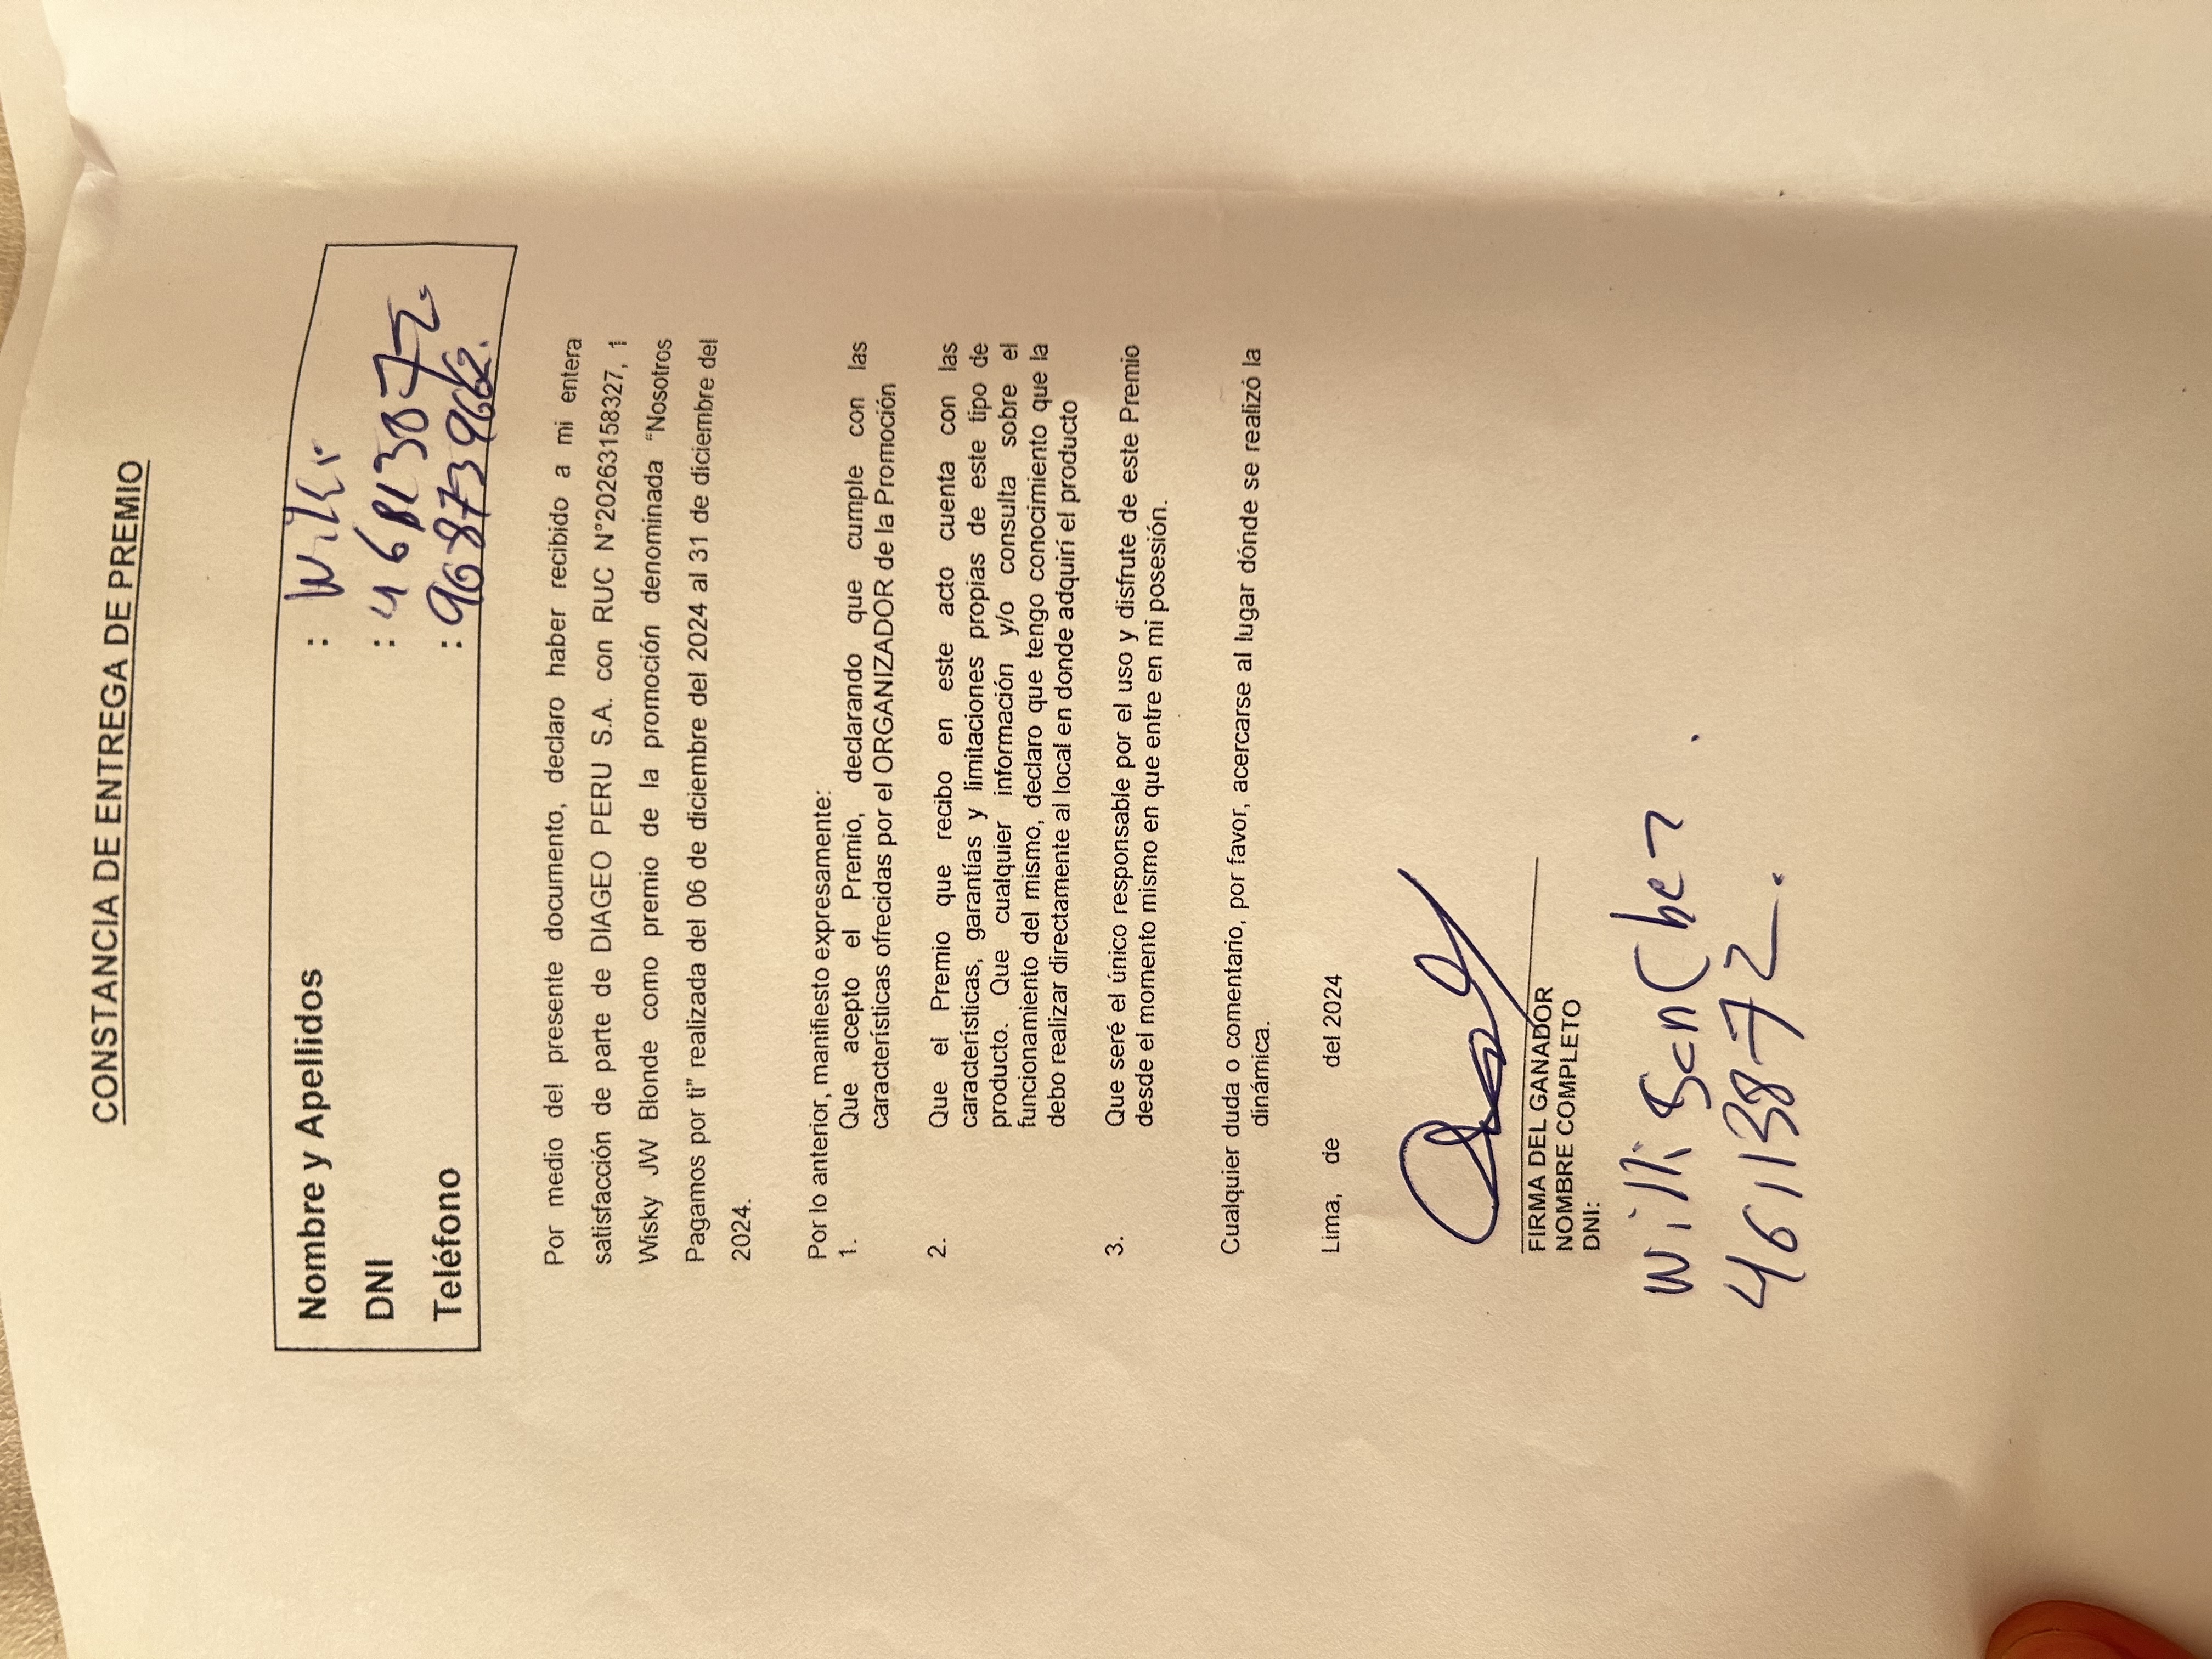 CONSTANCIA DE ENTREGA DE PREMIO
Nombre y Apellidos :
DNI :
Teléfono : 968739662.
Por medio del presente documento, declaro haber recibido a mi entera
satisfacción de parte de DIAGEO PERU S.A. con RUC N°20263158327, 1
Wisky JW Blonde como premio de la promoción denominada “Nosotros
Pagamos por ti” realizada del 06 de diciembre del 2024 al 31 de diciembre del
2024.
Por lo anterior, manifiesto expresamente:
1. Que acepto el Premio, declarando que cumple con las
características ofrecidas por el ORGANIZADOR de la Promoción
2. Que el Premio que recibo en este acto cuenta con las
características, garantías y limitaciones propias de este tipo de
producto. Que cualquier información y/o consulta sobre el
funcionamiento del mismo, declaro que tengo conocimiento que la
debo realizar directamente al local en donde adquirí el producto
3. Que seré el único responsable por el uso y disfrute de este Premio
desde el momento mismo en que entre en mi posesión.
Cualquier duda o comentario, por favor, acercarse al lugar dónde se realizó la
dinámica.
Lima, de del 2024
FIRMA DEL GANADOR
NOMBRE COMPLETO
DNI:
Willi Sanchez.
46113872.